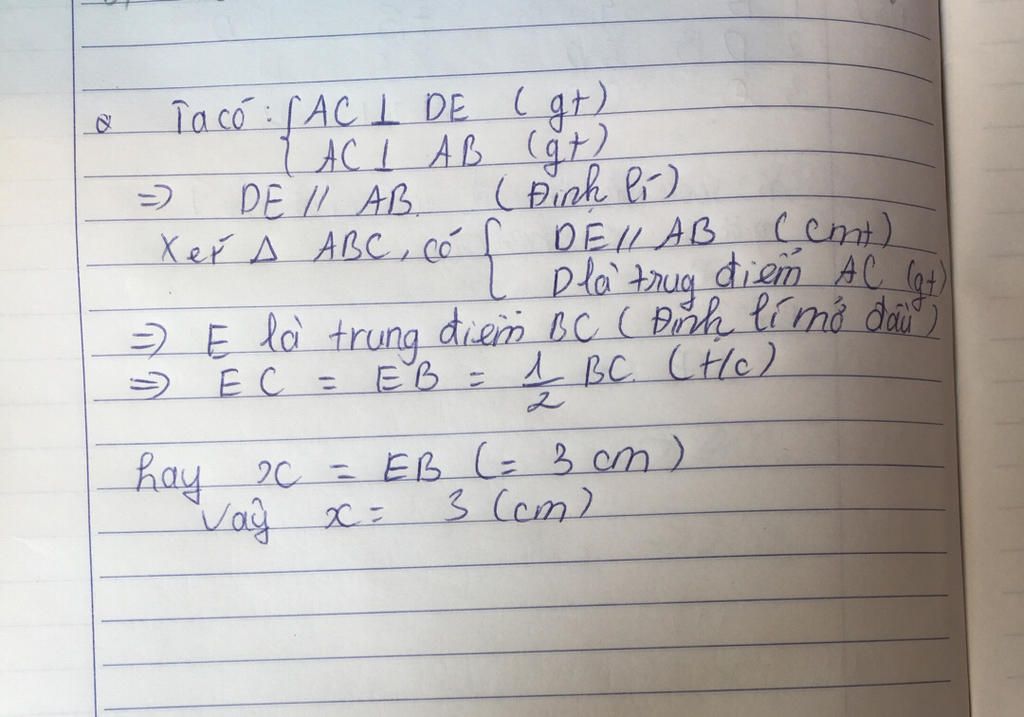 a Ta có: { AC ⊥ DE (gt)
AC ⊥ AB (gt)
=> DE // AB. (Định lí)
Xét Δ ABC, có { DE // AB (cmt)
D là trug điểm AC (gt)
=> E là trung điểm BC (Định lí mở đầu)
=> EC = EB = 1/2 BC. (t/c)
hay x = EB (= 3 cm)
Vậy x = 3 (cm)